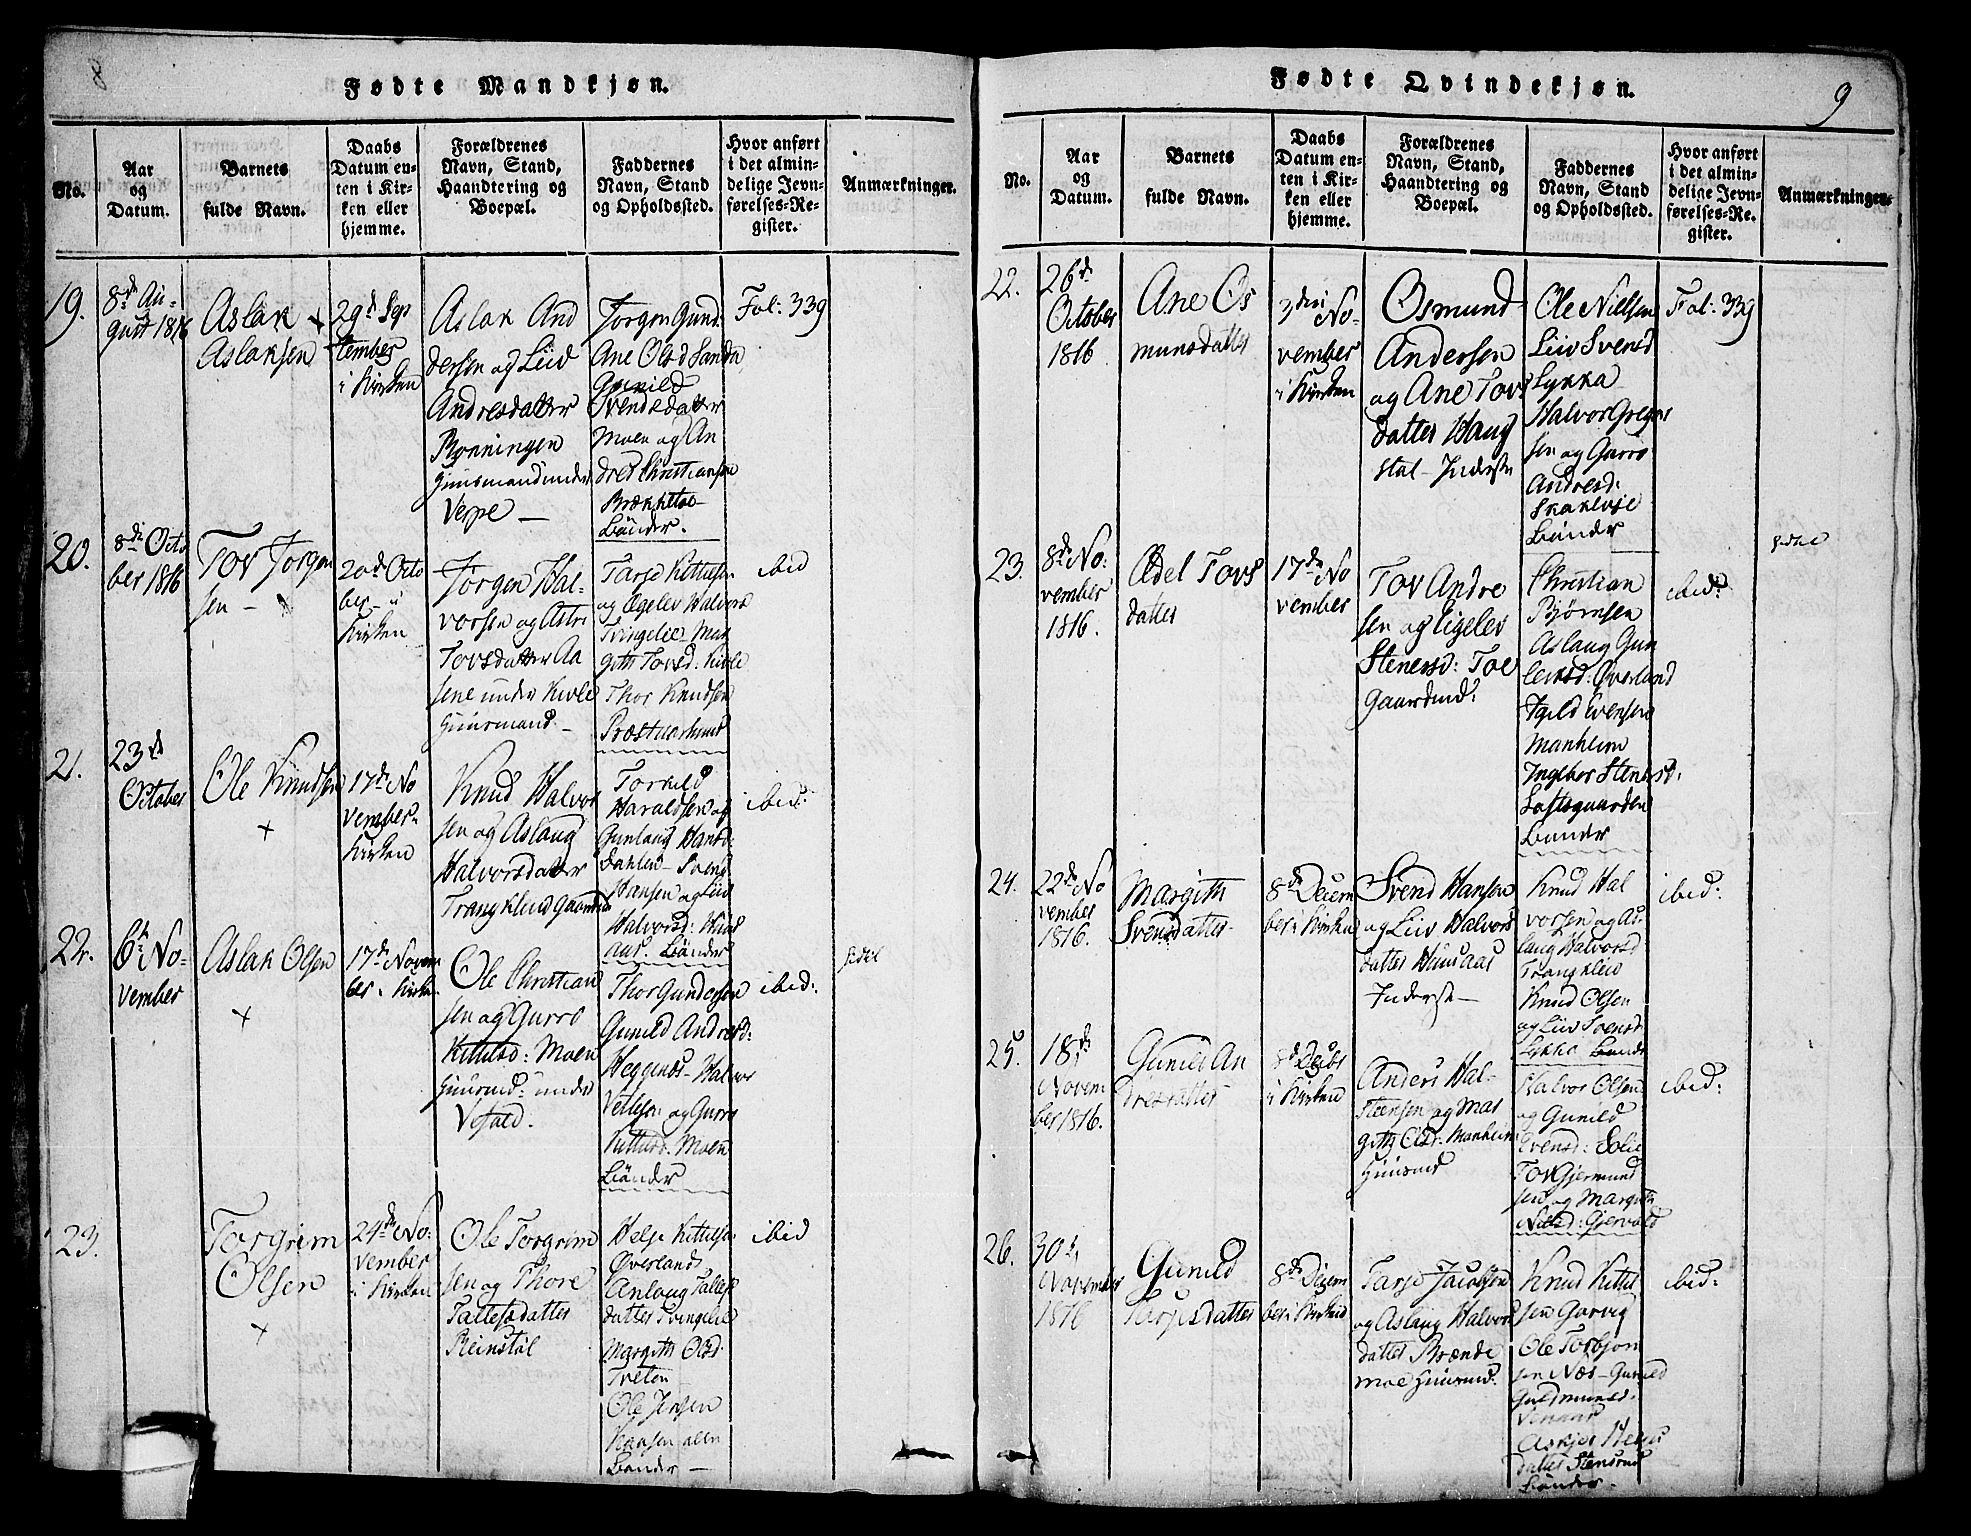 8
Fødte Mandkjøn.
No.
Aar
og
Datum.
Barnets
fulde Navn.
Daabs
Datum en-
ten i Kir-
ken eller
hjemme.
Forældrenes
Navn, Stand,
Haandtering og
Boepæl.
Faddernes
Navn, Stand
og Opholdssted.
Hvor anført
i det almin-
delige Jevn-
førelses-Re-
gister.
Anmærkninger.
19.
8de Au-
gust 1816
Aslak +
Aslaksen
29d Sep
tember
i Kirken
Aslak And
dersen og Liid
Andresdatter
Rønningen
Huusmand under
Verpe —
Jorgen Gund
Ane Olsd Sanda
Gunild
Svendsdatter
Moen og An
dres Christiansen
Brækketoe
Bønder.
Fol: 339
20.
8de Octo
ber 1816
Tov Jorgen
sen —
20d Octo
ber - i
Kirken
Jorgen Hal-
vorsen og Astri
Tovsdatter Aa
sene under Kivle
Huusmand —
Tarje Kittilsen
og Egelev Halvord
Tvingelie Mar
gith Tovsd: Kivle
Thor Knudsen
ibid
21.
23de
October
Ole Knudsen
+
17de No
vember
Kirken
Knud Halvor
sen og Aslaug
Halvorsdatter
Trangkleiv Gaardm
Torkild
Haraldsen og
Gunlaug Hansd:
Dahlen Svend
Hansen og Liv
Halvorsd: Huus
aas. Bønder
ibid:
22.
6te No-
vember
Aslak Olsen
+
17de Novem
ber i Kirken
Ole Christian
sen og Gurro
Kittilsd: Moen
Huusmd: under
Vefald.
Thor Gundersen
Gunild Andresd:
Heggenes - Halvor
Vetlesen og Gurro
Kittilsd. Moen
Bønder
ibid:
sedel
23.
Torgrim
Olsen
+
24de No-
vember
i Kirken
Ole Torgrim
sen og Thore
Tallefsdatter
Reinstøl
Helje Kittilsen
Øverland
Anlaug Tallef
datter Tvingelie
Margith Olsd.
Tveten
Ole Jensen
Hansen allen
Bønder —
ibid
9
Fødte Qvindekjøn.
No.
Aar
og
Datum.
Barnets
fulde Navn.
Daabs
Datum en-
ten i Kir-
ken eller
hjemme.
Forældrenes
Navn, Stand,
Haandtering og
Boepæl.
Faddernes
Navn, Stand
og Opholdssted.
Hvor anført
i det almin-
delige Jevn-
førelses-Re-
gister.
Anmærkninger.
22.
26de
October
1816
Ane Os
munsdatter
3die No-
vember
i Kirken
Osmund
Andersen
og Ane Tovs
datter Haug
stal - Inderste
Ole Nielsen
Liiv Svensd
Lykka
Halvor Gregor
sen og Gurro
Andresd:
Skaklvie
Bønder
Fol: 339
23.
8de No-
vember
1816.
Edel Tovs
datter
17de No
vember
Tov Andre
sen og Eigelev
Stenersd: Toe
Gaardmd:
Christian
Bjørnsen
Aslaug Gun
leiksd: Øverland
Kjeld Evensen
Manheim
Ingebor Stenersd:
Loftsgaarden
Bønder
ibid:
sedel
24.
22de No
vember
1816.
Margith
Svensdatter
8de Decem
ber i Kirken
Svend Hansen
og Liiv Halvors
datter Huusaas
Inderste —
Knud Hal
vorsen og As
laug Halvorsd
Trangkleiv
Knud Olsen
og Liiv Svensd.
Lykke Bønder
ibid:
25.
18de
Novem
ber 1816.
Gunild An
dresdatter
8d Decbr
i Kirken
Anders Hal-
steensen og Mar
gith Olsd: Manheim
Huusmd
Halvor Olsen
og Gunild
Svensd: Eolie
Tov Gjermund
sen og Margith
Nielsd: Gjervold
ibid:
26.
30te
November
1816
Gunild
Tarjesdatter
8de Decem
ber i Kirken
Tarje Jacobsen
og Aslaug Halvors
datter Brænde
moe Huusmd:
Knud Kittel
sen Garvig
Ole Torbjørn
sen Næs - Gunild
Guldmundsd.
Venaas
Askjer Stener
datter Stensrud
Bønder.
ibid: